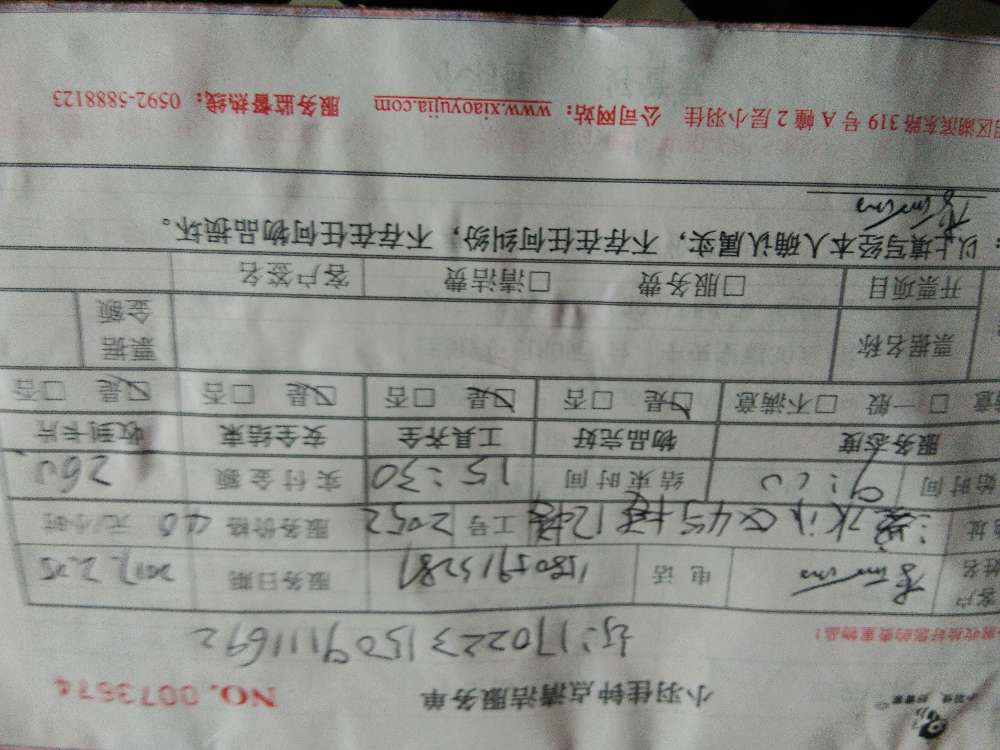 小羽佳钟点清洁服务单 NO. 0073674
170223150911692
客户姓名 电话 服务日期 2017.2.25
工号 2052 服务价格 40 元/小时
始时间 9:00 结束时间 15:30 实付金额 260
服务态度 物品完好 工具齐全 安全结束 收到卡片
意 □一般 □不满意 ☑是 □否 ☑是 □否 ☑是 □否 ☑是 □否
票据名称 票据金额
开票项目 □服务费 □清洁费 客户签名
：以上填写经本人确认属实，不存在任何纠纷，不存在任何物品损坏。
区湖滨东路 319 号 A 幢 2 层小羽佳 公司网站：www.xiaoyujia.com 服务监督热线：0592-5888123